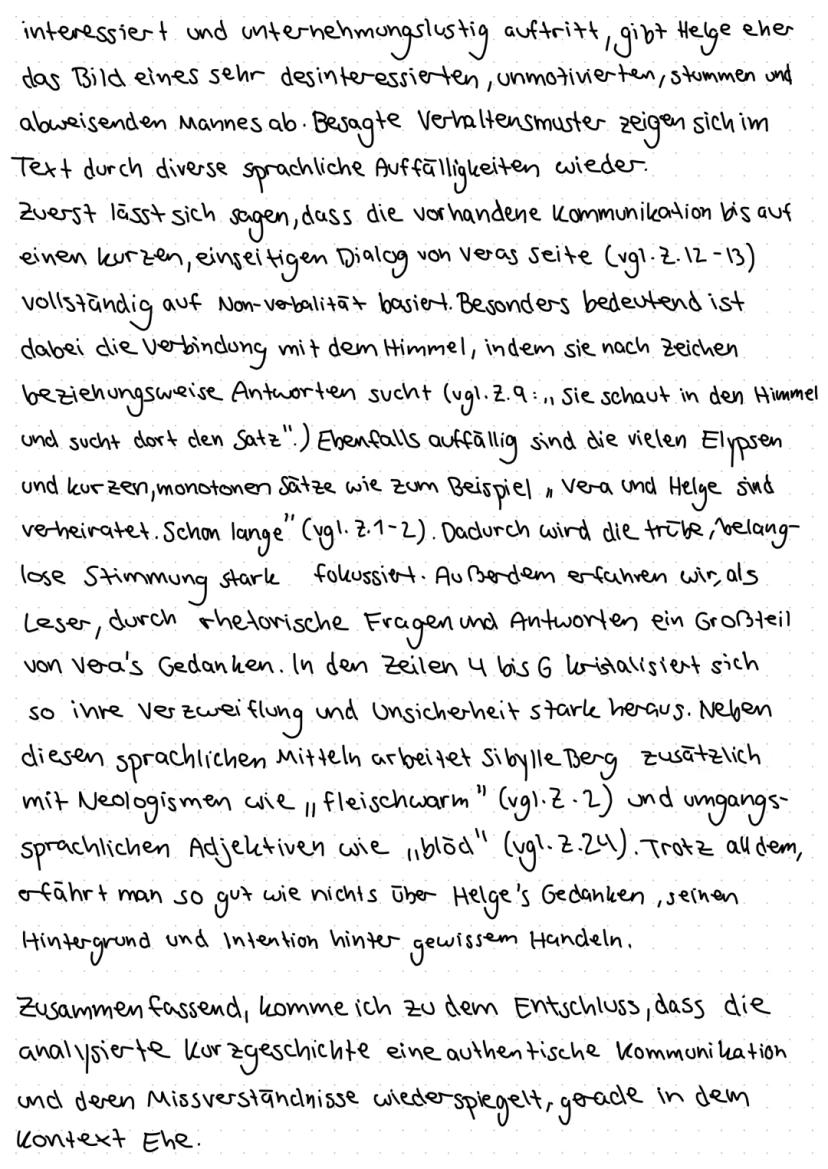 interessiert und unternehmungslustig auftritt, gibt Helge eher
das Bild eines sehr desinteressierten, unmotivierten, stummen und
abweisenden Mannes ab. Besagte Verhaltensmuster zeigen sich im
Text durch diverse sprachliche Auffälligkeiten wieder.
Zuerst lässt sich sagen, dass die vorhandene Kommunikation bis auf
einen kurzen, einseitigen Dialog von Veras Seite (vgl. Z. 12-13)
vollständig auf Non-verbalität basiert. Besonders bedeutend ist
dabei die Verbindung mit dem Himmel, indem sie nach Zeichen
beziehungsweise Antworten sucht (vgl. Z. 9: „Sie schaut in den Himmel
und sucht dort den Satz".) Ebenfalls auffällig sind die vielen Elypsen
und kurzen, monotonen Sätze wie zum Beispiel „Vera und Helge sind
verheiratet. Schon lange" (vgl. Z. 1-2). Dadurch wird die trübe, belang-
lose Stimmung stark fokussiert. Außerdem erfahren wir, als
Leser, durch rhetorische Fragen und Antworten ein Großteil
von Vera's Gedanken. In den Zeilen 4 bis 6 kristalisiert sich
so ihre Verzweiflung und Unsicherheit stark heraus. Neben
diesen sprachlichen Mitteln arbeitet Sibylle Berg zusätzlich
mit Neologismen wie „fleischwarm" (vgl. Z. 2) und umgangs-
sprachlichen Adjektiven wie „blöd" (vgl. Z. 24). Trotz all dem,
erfährt man so gut wie nichts über Helge's Gedanken, seinen
Hintergrund und Intention hinter gewissem Handeln.
Zusammenfassend, komme ich zu dem Entschluss, dass die
analysierte Kurzgeschichte eine authentische Kommunikation
und deren Missverständnisse wiederspiegelt, gerade in dem
Kontext Ehe.